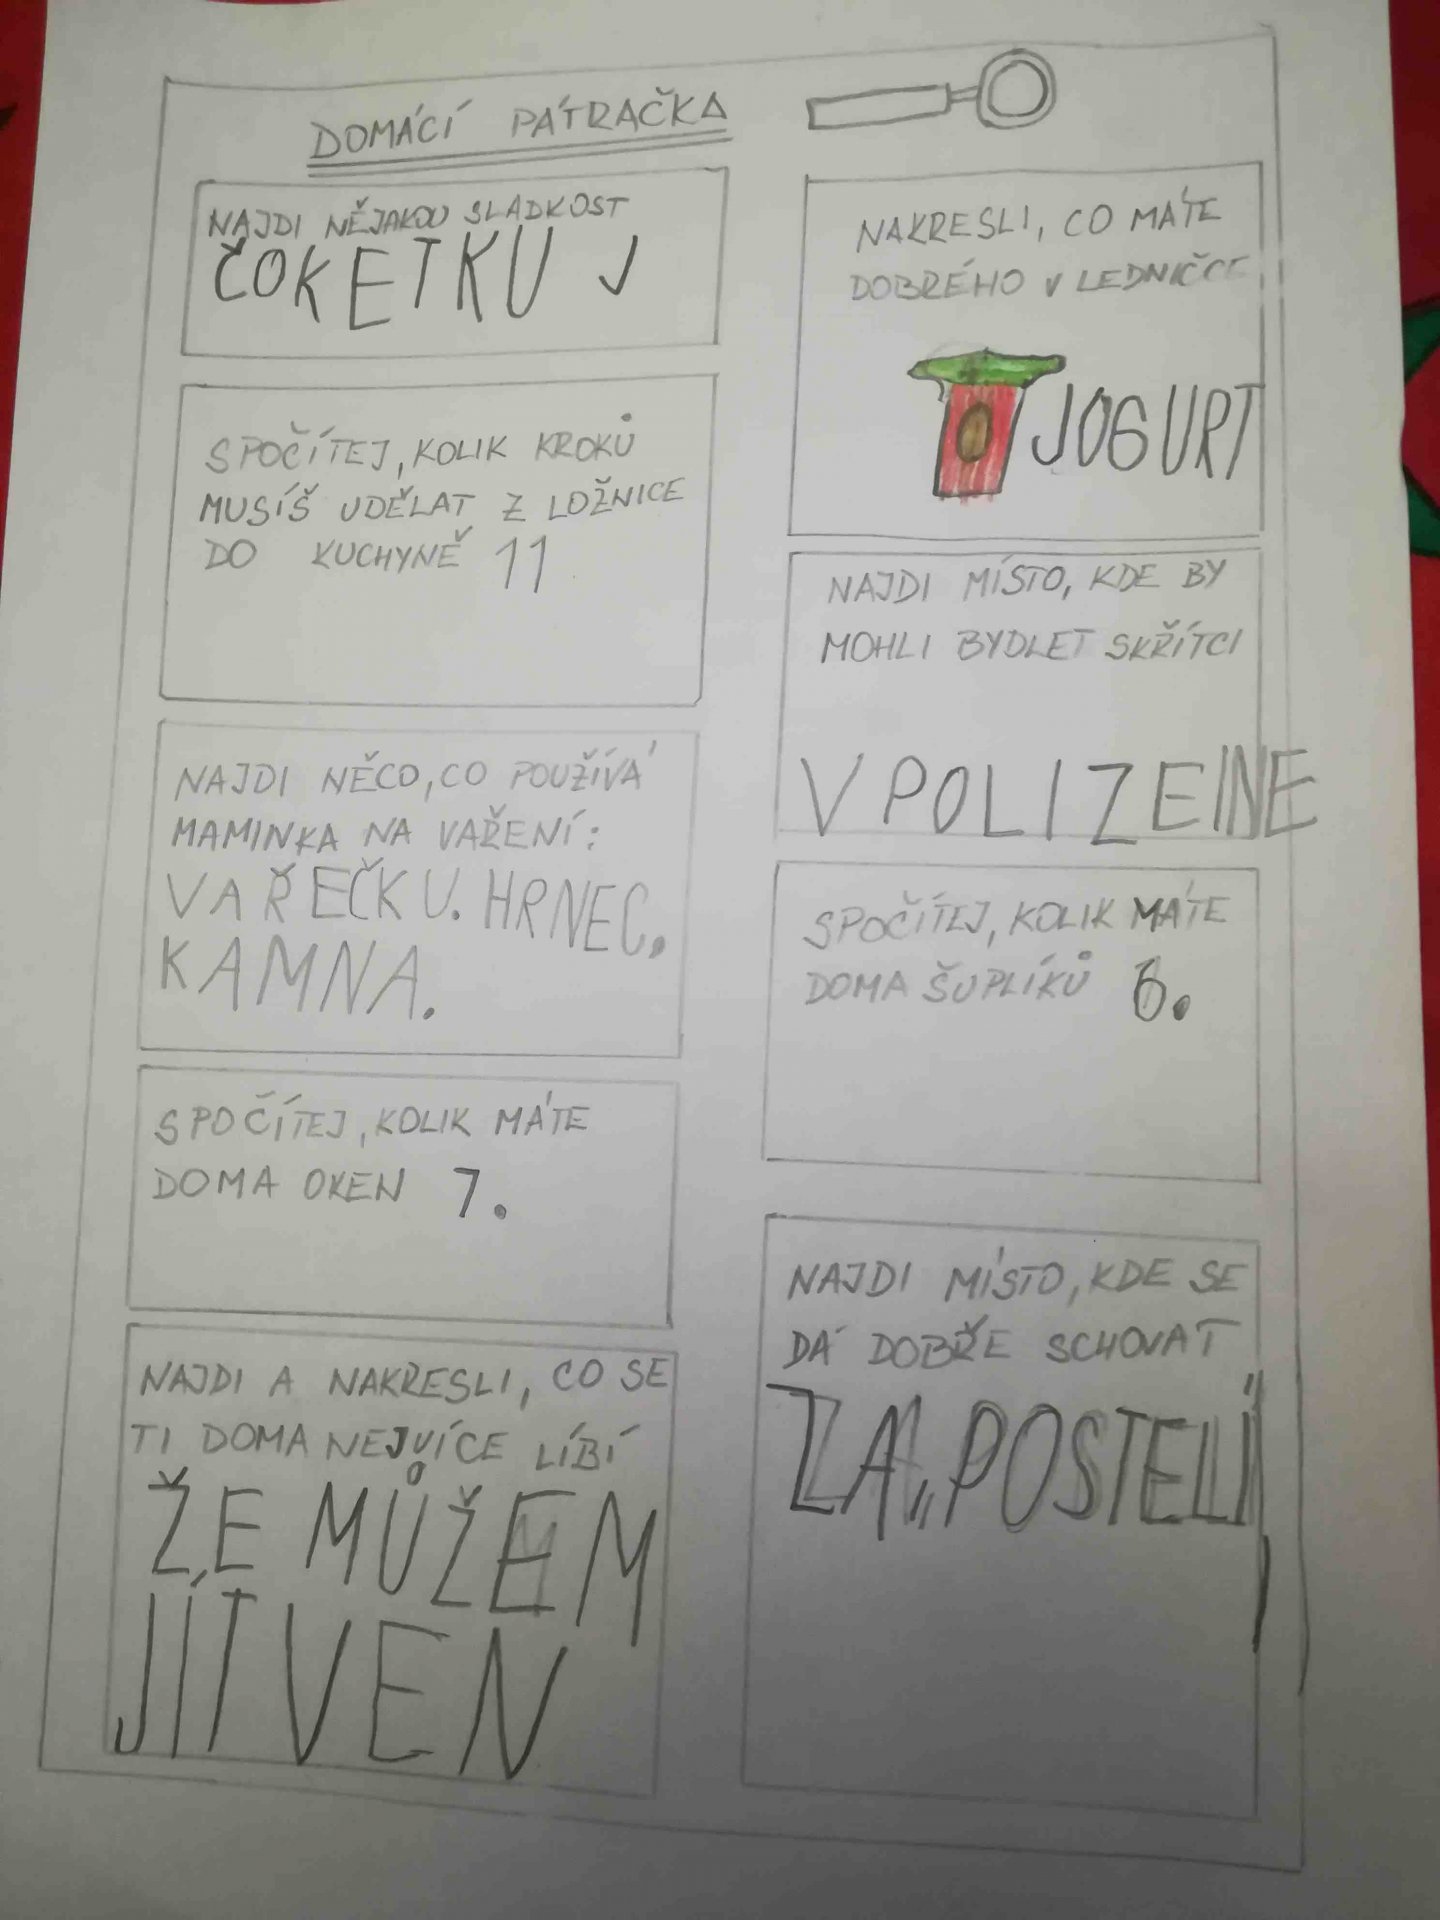 DOMÁCÍ PÁTRAČKA
NAJDI NĚJAKOU SLADKOST
ČOKETKU
SPOČÍTEJ, KOLIK KROKŮ
MUSÍŠ UDĚLAT Z LOŽNICE
DO KUCHYNĚ 11
NAJDI NĚCO, CO POUŽÍVÁ
MAMINKA NA VAŘENÍ:
VAŘEČKU. HRNEC.
KAMNA.
SPOČÍTEJ, KOLIK MÁTE
DOMA OKEN 7.
NAJDI A NAKRESLI, CO SE
TI DOMA NEJVÍCE LÍBÍ
ŽE MŮŽEM
JÍT VEN
NAKRESLI, CO MÁTE
DOBRÉHO V LEDNIČCE
JOGURT
NAJDI MÍSTO, KDE BY
MOHLI BYDLET SKŘÍTCI
V POLIZEINE
SPOČÍTEJ, KOLIK MÁTE
DOMA ŠUPLÍKŮ
NAJDI MÍSTO, KDE SE
DÁ DOBŘE SCHOVAT
ZA„POSTELÍ